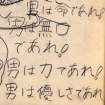 男は命であれ。
男は無口
であれ。
男は力であれ。
男は優しさであれ